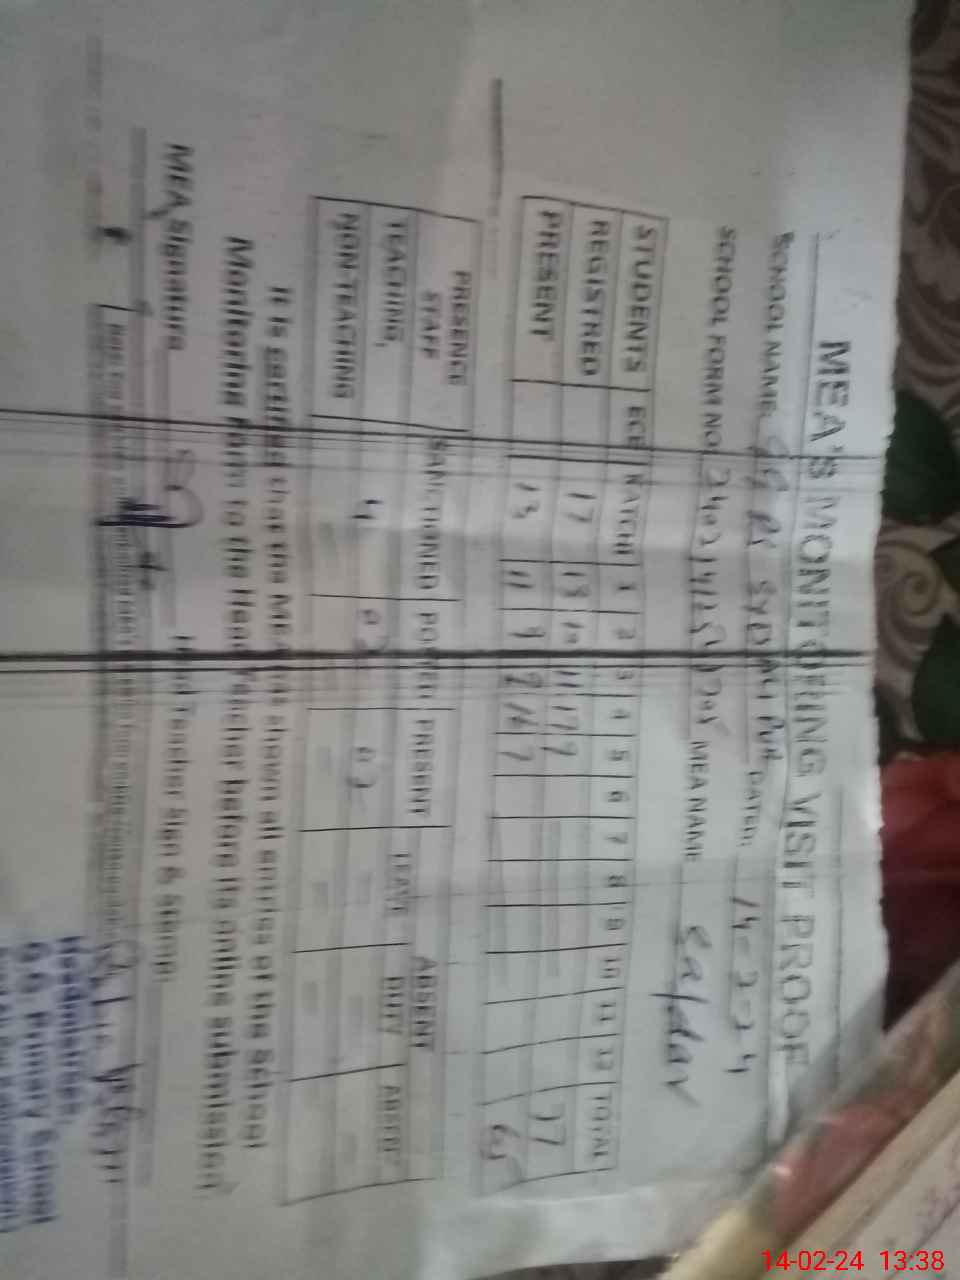 MEA'S MONITORING VISIT PROOF
SCHOOL NAME GG PS SYED ALI PUR DATED: 14-2-24
SCHOOL FORM NO. MEA NAME Safdar
STUDENTS ECE KATCHI 1 2 3 4 5 6 7 8 9 10 11 12 TOTAL
REGISTRED 17 13 10 11 17 9 77
PRESENT 13 11 9 9 16 7 65
PRESENCE STAFF SANCTIONED POSTED PRESENT ABSENT
LEAVE DUTY ABSENT
TEACHING 4 02 02
NON TEACHING
It is certified that the MEA has shown all entries of the School
Monitoring Form to the Head Teacher before its online submission.
MEA Signature Head Teacher Sign & Stamp
Headmistress
G.G. Primary School
14-02-24 13:38